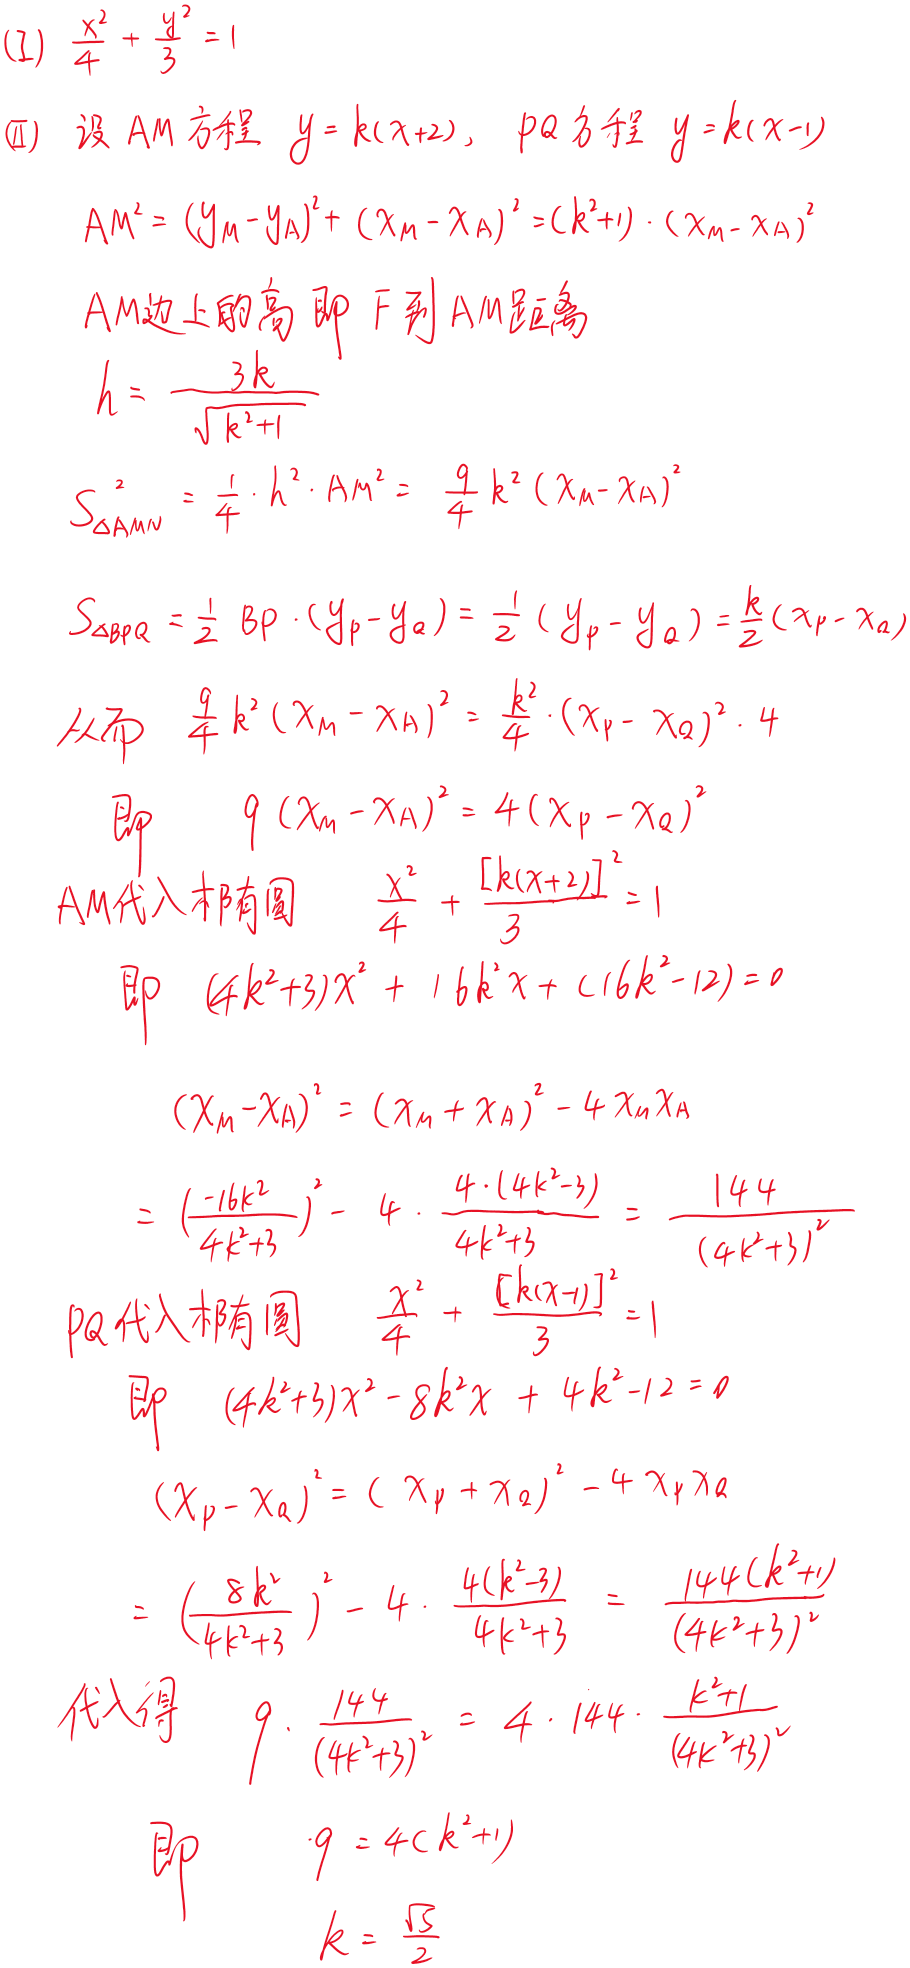 (I) x²/4 + y²/3 = 1
(II) 设 AM 方程 y = k(x+2), PQ 方程 y = k(x-1)
AM² = (y_M - y_A)² + (x_M - x_A)² = (k²+1)·(x_M - x_A)²
AM边上的高 即 F 到 AM距离
h = 3k/√(k²+1)
S²_△AMN = 1/4 · h² · AM² = 9/4 k² (x_M - x_A)²
S_△BPQ = 1/2 BP · (y_P - y_Q) = 1/2 (y_P - y_Q) = k/2 (x_P - x_Q)
从而 9/4 k² (x_M - x_A)² = k²/4 · (x_P - x_Q)² · 4
即 9 (x_M - x_A)² = 4 (x_P - x_Q)²
AM代入椭圆 x²/4 + [k(x+2)]²/3 = 1
即 (4k²+3)x² + 16k²x + (16k²-12) = 0
(x_M - x_A)² = (x_M + x_A)² - 4x_M x_A
= (-16k²/(4k²+3))² - 4 · 4·(4k²-3)/(4k²+3) = 144/(4k²+3)²
PQ代入椭圆 x²/4 + [k(x-1)]²/3 = 1
即 (4k²+3)x² - 8k²x + 4k²-12 = 0
(x_P - x_Q)² = (x_P + x_Q)² - 4x_P x_Q
= (8k²/(4k²+3))² - 4 · 4(k²-3)/(4k²+3) = 144(k²+1)/(4k²+3)²
代入得 9 · 144/(4k²+3)² = 4 · 144 · (k²+1)/(4k²+3)²
即 9 = 4(k²+1)
k = √5/2